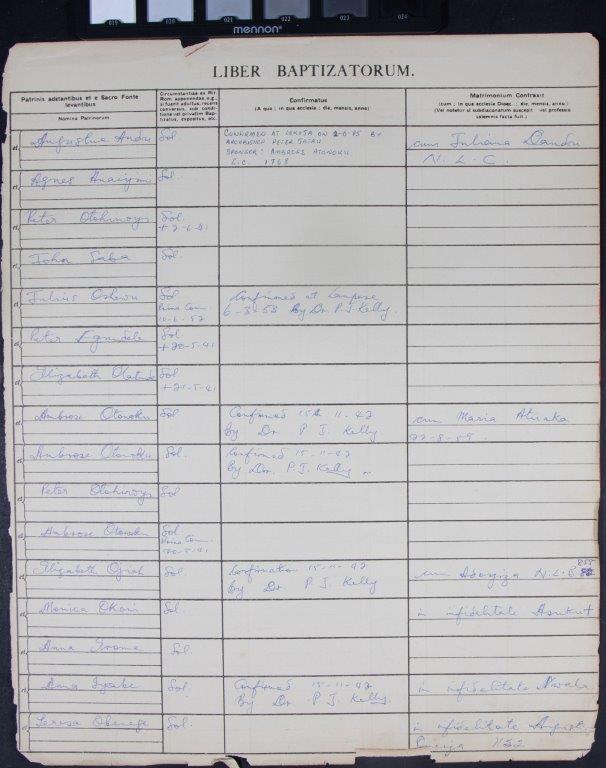 019 020 021 022 023 024
mennon
LIBER BAPTIZATORUM.
Patrinis adstantibus et e Sacro Fonte
levantibus
Nomina Patrinorum
Circumstantiae ex Rit.
Rom. apponendae, e.g.,
si fuerit adultus, recens
conversus, sub condi-
tione vel privatim Bap-
tizatus, expositus, etc.
Confirmatus
(A quo ; in qua ecclesia ; die, mensis, anno)
Matrimonium Contraxit
(cum ; in qua ecclesia Dioec. ; die, mensis, anno.)
(Vel notetur si subdiaconatum suscepit vel professio
solemnis facta fuit.)
Augustus Andu
Sol
CONFIRMED AT LOKOJA ON BY
ARCHBISHOP PETER JATAU
SPONSOR: AMBROSE ATONOKU
L.C. 1768
cum Juliana
N.L.C.
Agnes
Sol.
Peter Otohinoyi
Sol.
+ 2-6-41
John Saba
Sol.
Julius
Sol
Prima Com.
10-6-52
Confirmed at Lampese
6-3-53 By Dr. P.J. Kelly.
Peter
Sol.
+ 20-5-41
Elizabeth
Sol
+ 21-5-41
Ambrose Otonoku
Sol
Confirmed 15th 11-42
By Dr P J. Kelly
cum Maria
22-8-59
Ambrose Otonoku
Sol.
Confirmed 15-11-42
By Dr. P J. Kelly
Peter Otohinoyi
Sol
Ambrose Otonoku
Sol.
Prima Com.
Elizabeth Ojiah
Sol.
Confirmation 15-11-42
By Dr P. J. Kelly
cum N.L.B 855
Monica Okoni
Sol.
in infidelitate
Anna
Sol
Anna Iyabe
Sol.
Confirmed 15-11-42
By Dr. P J. Kelly.
in infidelitate
Teresa
Sol.
in infidelitate